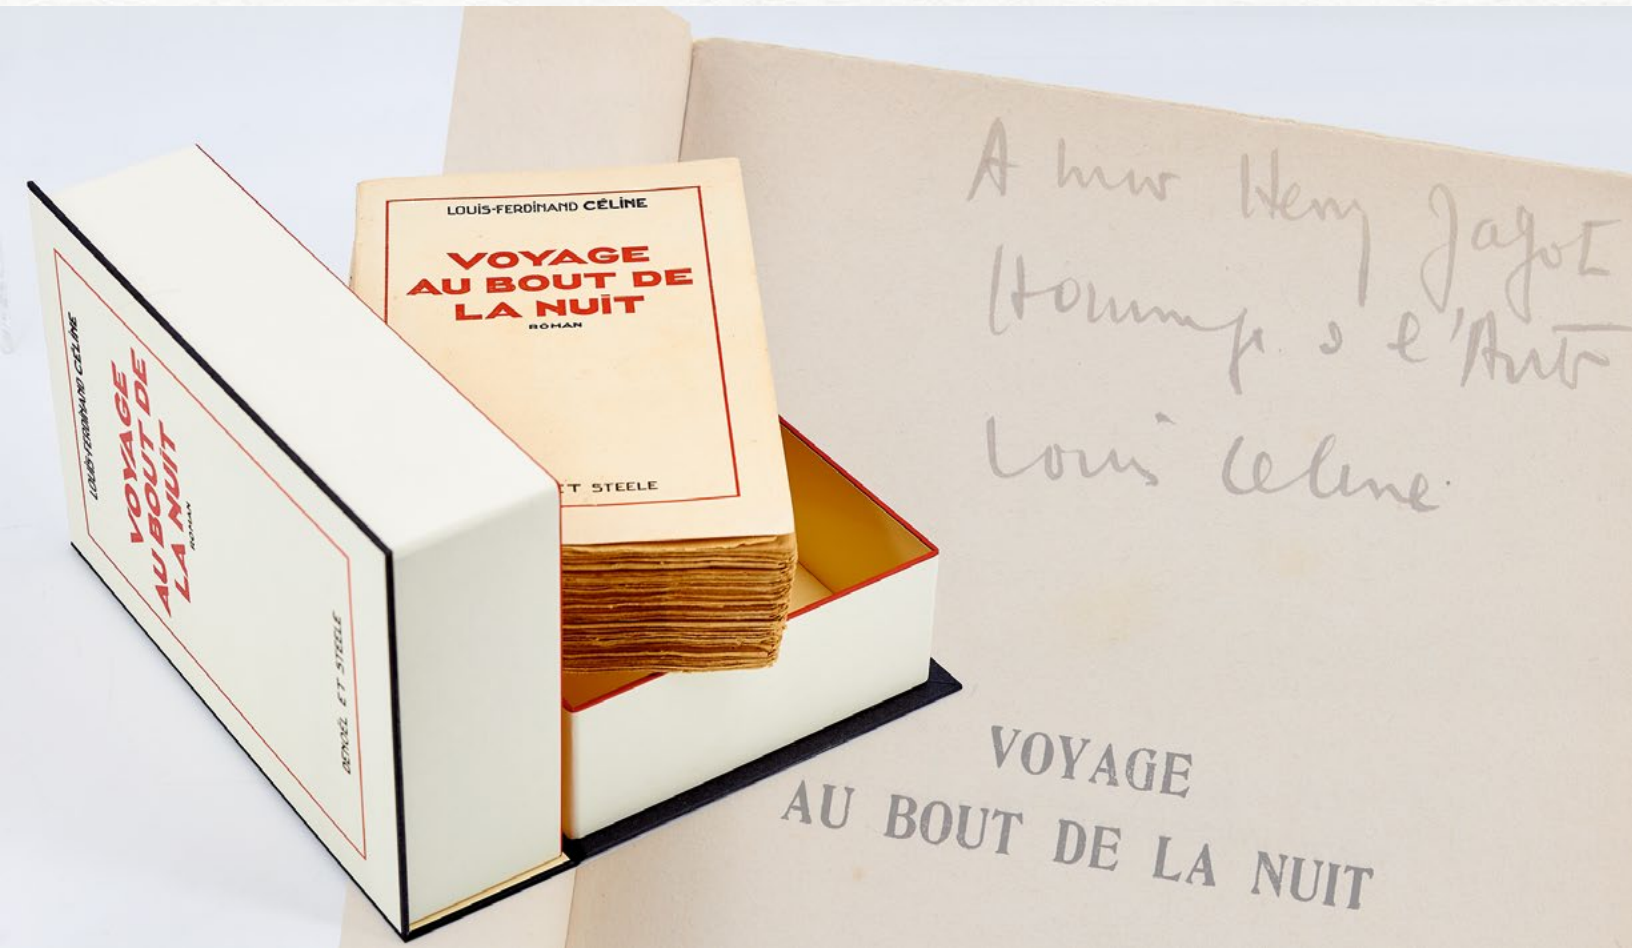 LOUIS-FERDINAND CÉLINE
VOYAGE
AU BOUT DE
LA NUIT
ROMAN
DENOËL ET STEELE
LOUIS-FERDINAND CÉLINE
VOYAGE
AU BOUT DE
LA NUIT
ROMAN
ET STEELE
A Henry Jagot
Hommage l'Aut
Louis Celine
VOYAGE
AU BOUT DE LA NUIT